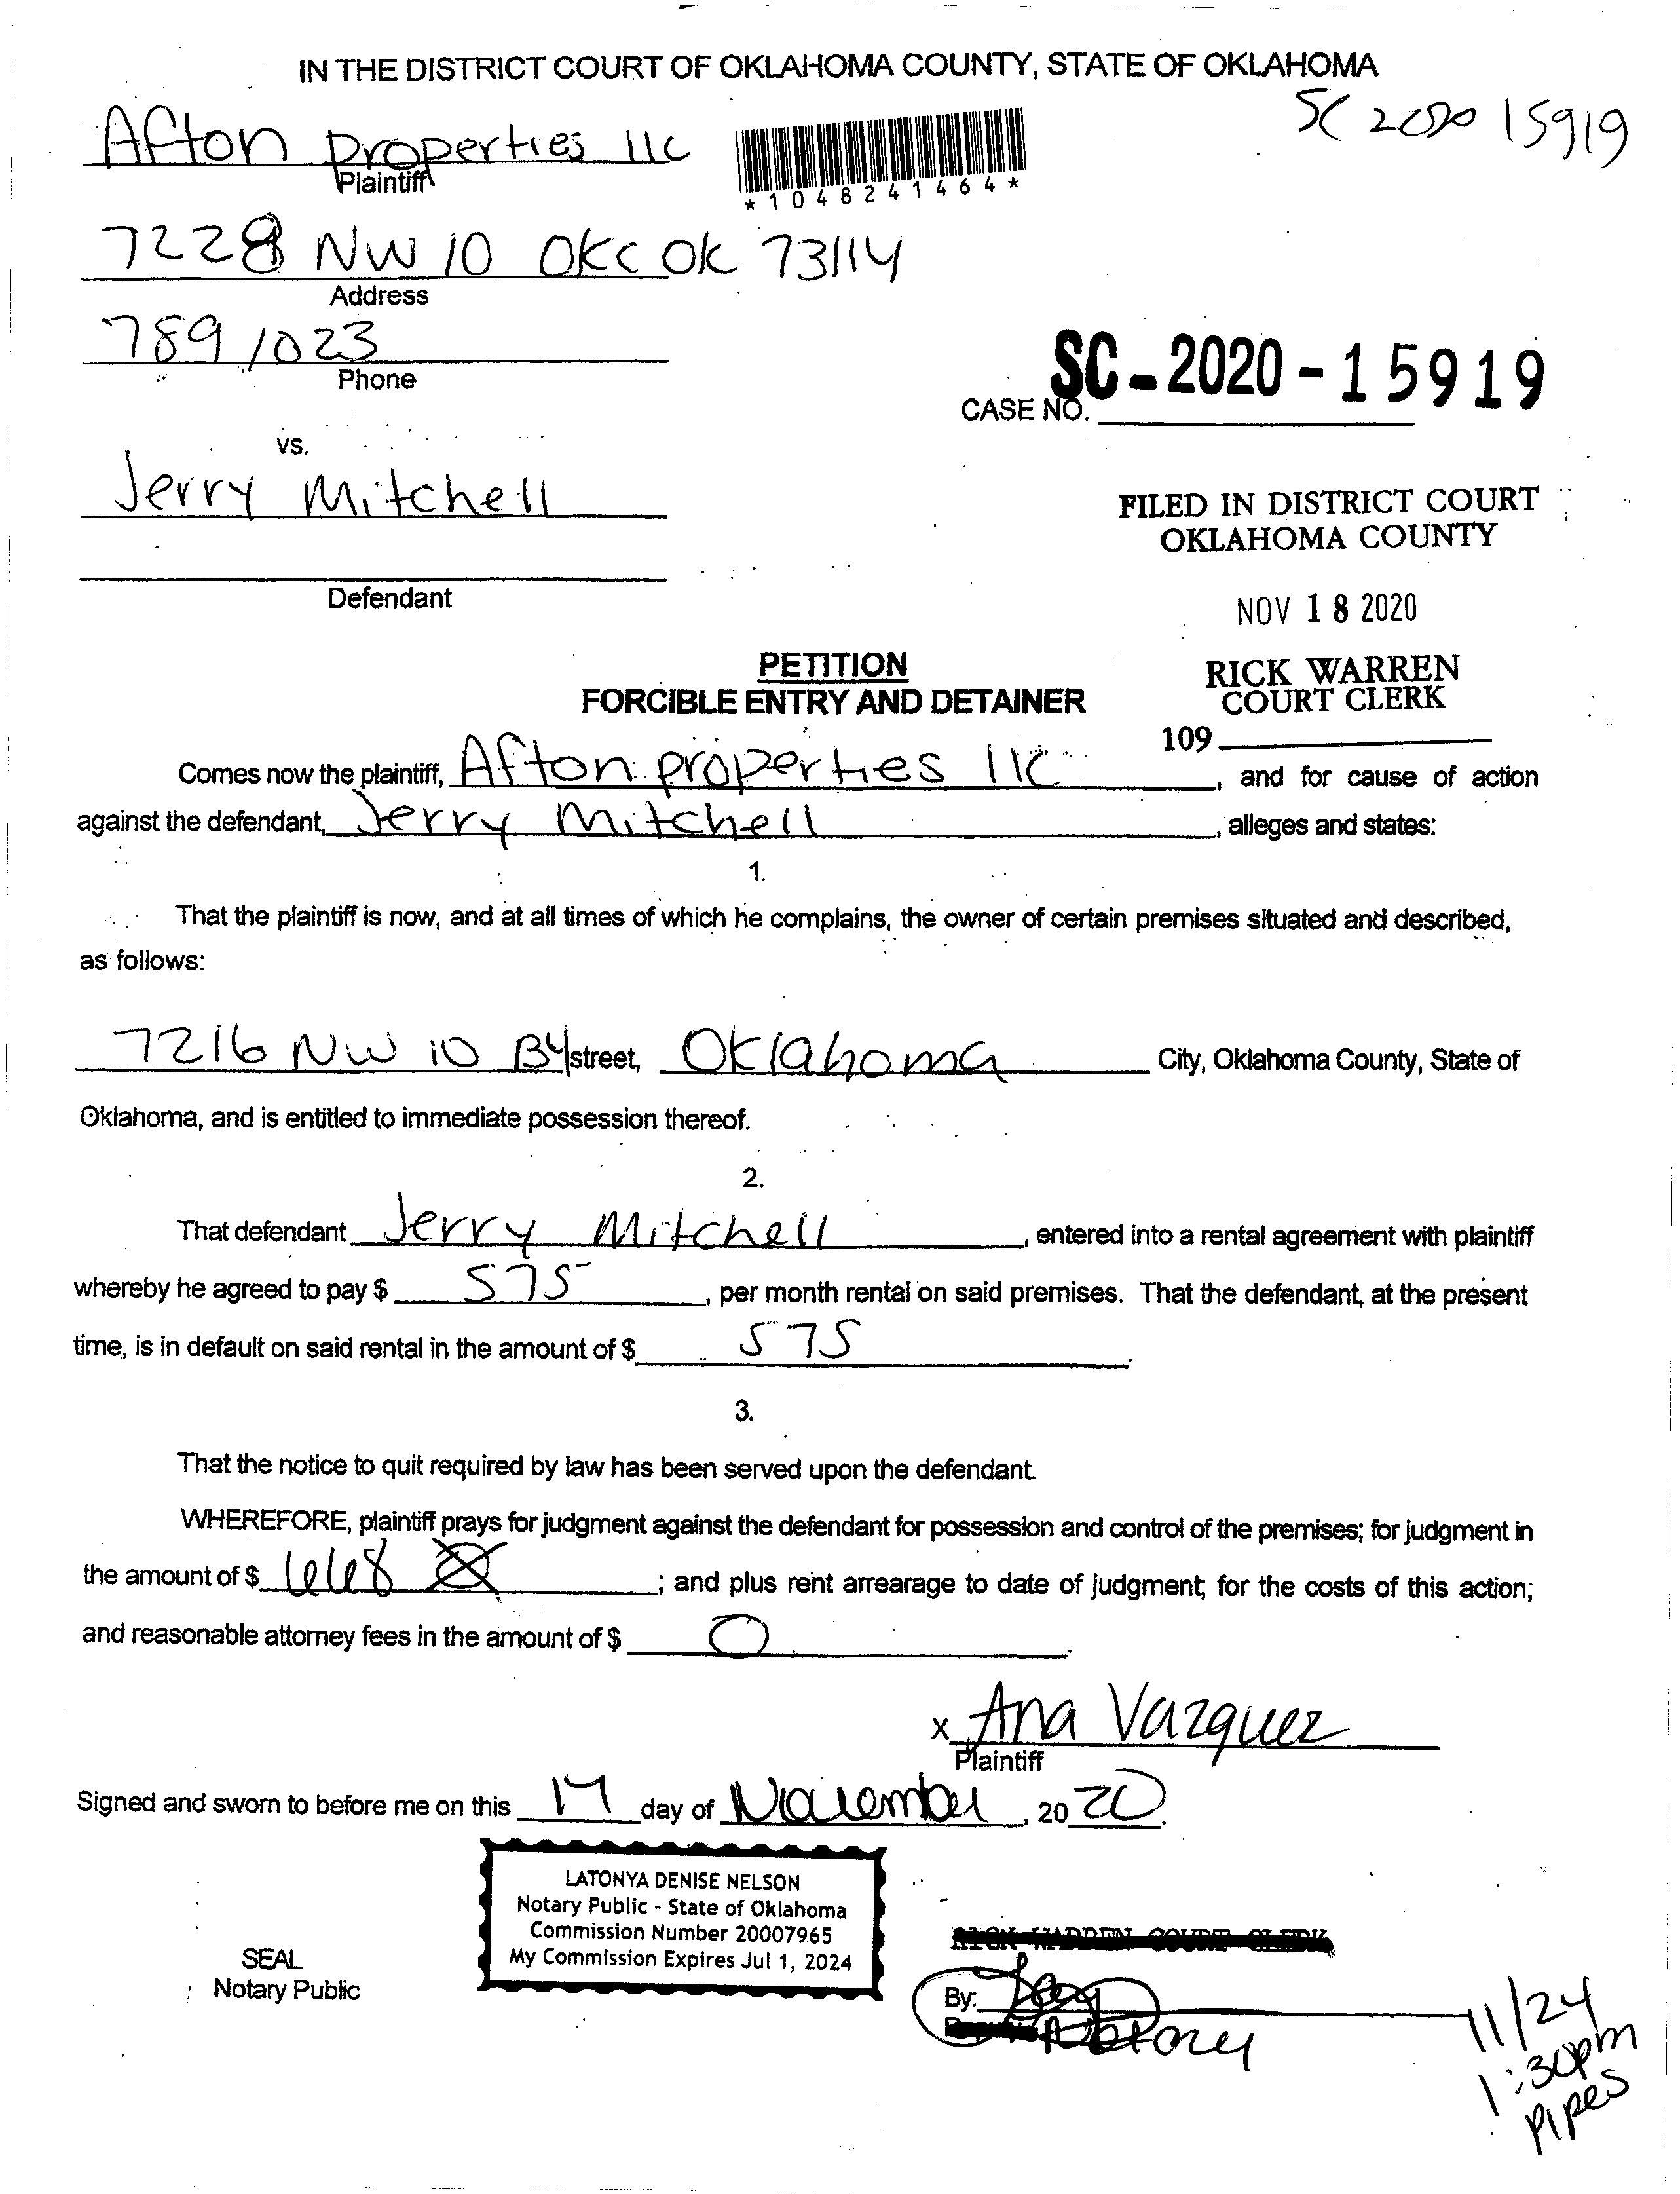 IN THE DISTRICT COURT OF OKLAHOMA COUNTY, STATE OF OKLAHOMA
SC 2020 15919
Afton properties llc
Plaintiff
*1048241464*
7228 NW 10 OKC OK 73114
Address
789 1023
Phone
SC-2020-15919
CASE NO.
vs.
Jerry Mitchell
Defendant
FILED IN DISTRICT COURT
OKLAHOMA COUNTY
NOV 18 2020
RICK WARREN
COURT CLERK
109
PETITION
FORCIBLE ENTRY AND DETAINER
Comes now the plaintiff, Afton properties llc, and for cause of action
against the defendant, Jerry Mitchell, alleges and states:
1.
That the plaintiff is now, and at all times of which he complains, the owner of certain premises situated and described,
as follows:
7216 NW 10 B4 street, Oklahoma City, Oklahoma County, State of
Oklahoma, and is entitled to immediate possession thereof.
2.
That defendant Jerry Mitchell, entered into a rental agreement with plaintiff
whereby he agreed to pay $ 575, per month rental on said premises. That the defendant, at the present
time, is in default on said rental in the amount of $ 575.
3.
That the notice to quit required by law has been served upon the defendant.
WHEREFORE, plaintiff prays for judgment against the defendant for possession and control of the premises; for judgment in
the amount of $ 668; and plus rent arrearage to date of judgment; for the costs of this action;
and reasonable attorney fees in the amount of $ 0.
x Ana Vazquez
Plaintiff
Signed and sworn to before me on this 17 day of November, 2020.
LATONYA DENISE NELSON
Notary Public - State of Oklahoma
Commission Number 20007965
My Commission Expires Jul 1, 2024
SEAL
Notary Public
RICK WARREN COURT CLERK
By:
Notary
11/24
1:30pm
Pipes